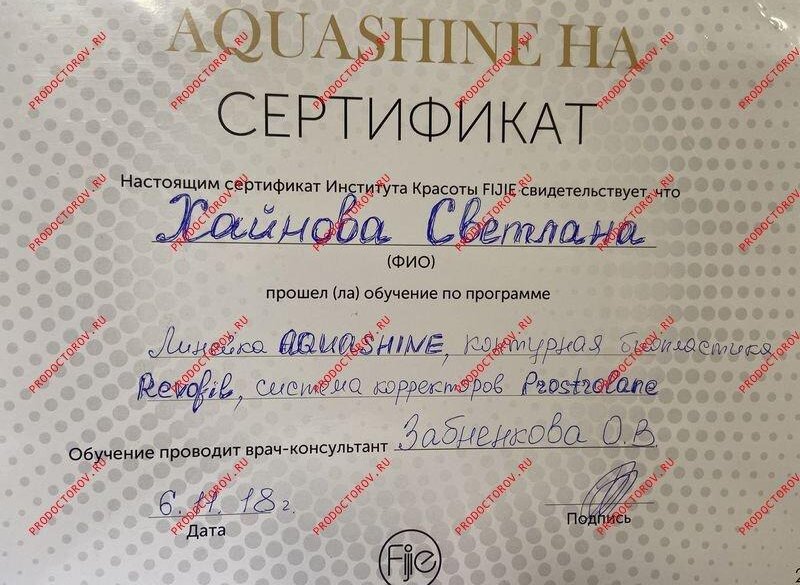 AQUASHINE HA
СЕРТИФИКАТ
Настоящим сертификат Института Красоты FIJIE свидетельствует, что
Хайнова Светлана
(ФИО)
прошел (ла) обучение по программе
Линейка AQUASHINE, контурная биопластика
Revofil, система корректоров Prostrolane
Обучение проводит врач-консультант Забненкова О.В
6.11.18г.
Дата
Подпись
Fijie
PRODOCTOROV.RU